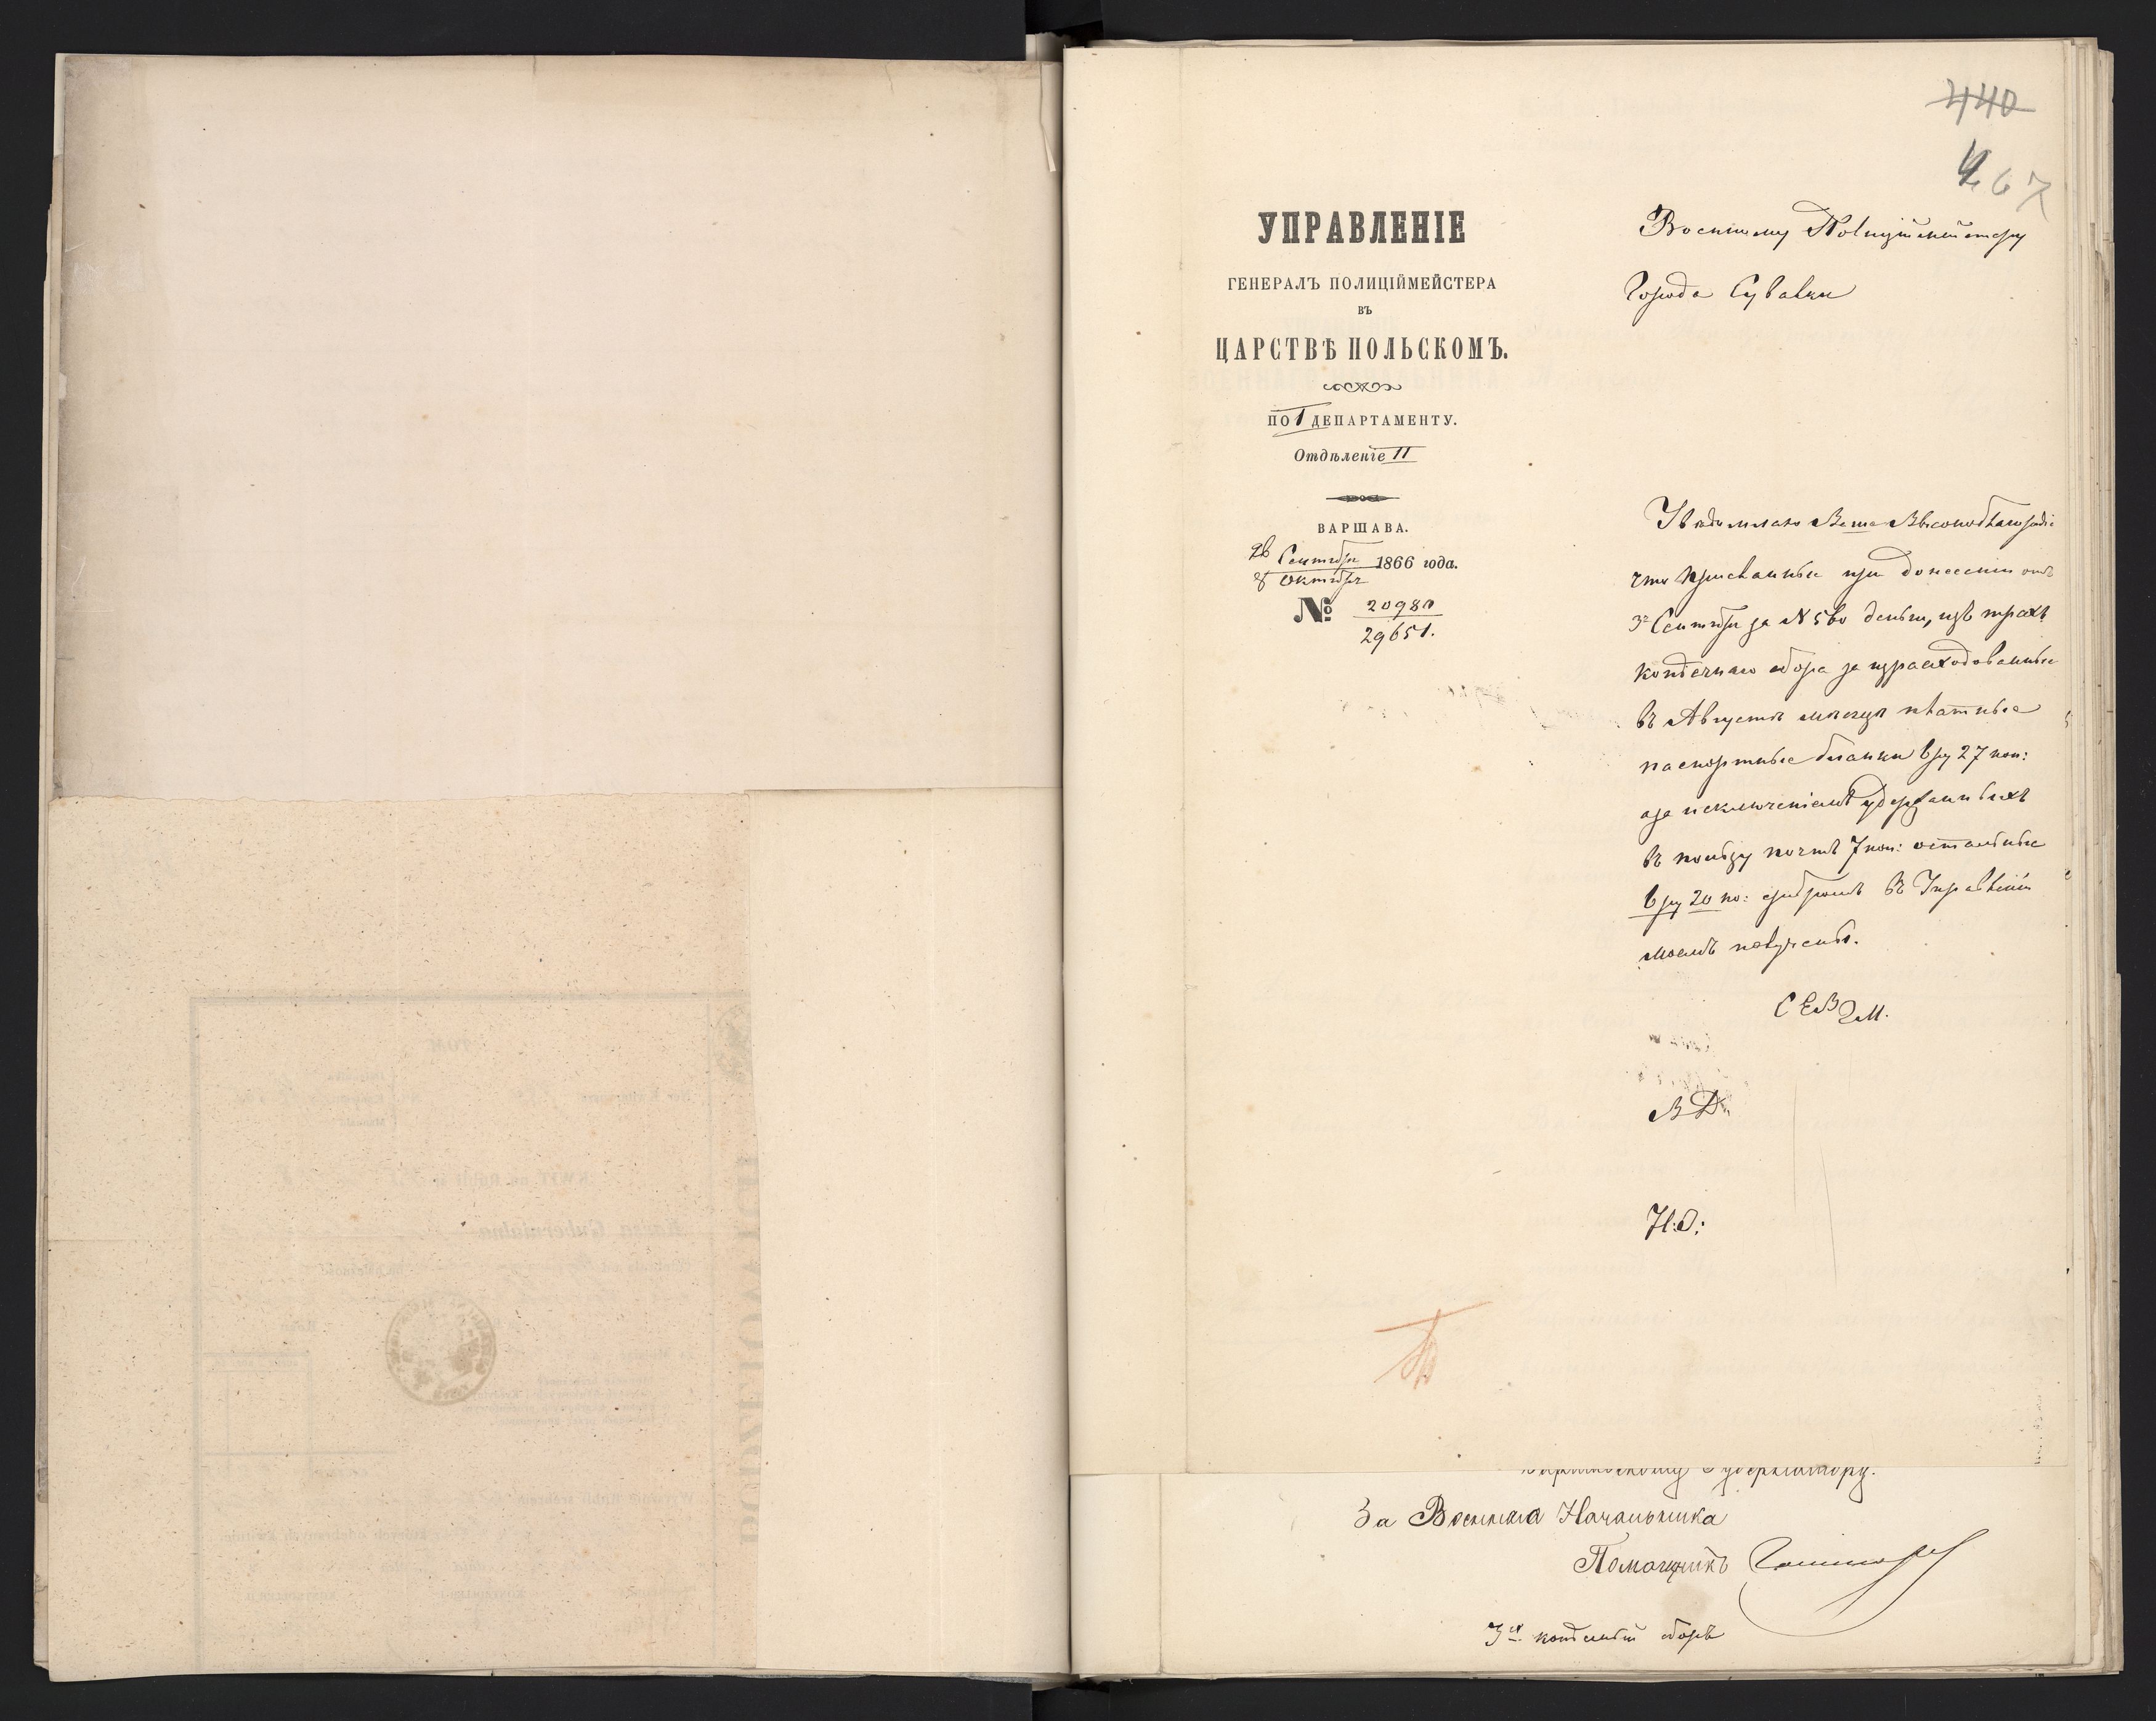 440
467
УПРАВЛЕНІЕ
ГЕНЕРАЛЪ ПОЛИЦІЙМЕЙСТЕРА
ВЪ
ЦАРСТВѢ ПОЛЬСКОМЪ.
ПО I ДЕПАРТАМЕНТУ.
Отдѣленіе II
ВАРШАВА.
26 Сентября
8 Октября 1866 года.
№ 20980
29651.
Военному Полиціймейстеру
Города Сувалки
Увѣдомляю Ваше Высокоблагородіе
что присланные при донесеніи отъ
3го Сентября за N 560 деньги, изъ трехъ
копѣечнаго сбора за израсходованные
въ Августѣ мѣсяцѣ платные
паспортные бланки 6 ру 27 коп:
а за исключеніемъ удержанныхъ
въ пользу почтъ 7 коп: остальные
6 ру 20 ко: серебромъ въ Управленіи
моемъ получены.
С Е В Г М.
В Д.
Н.О:
Губернатору.
За Военнаго Начальника
Помощникъ
3х копѣечный сборъ
KWIT na Rubli sr.
Kassa Gubernialna